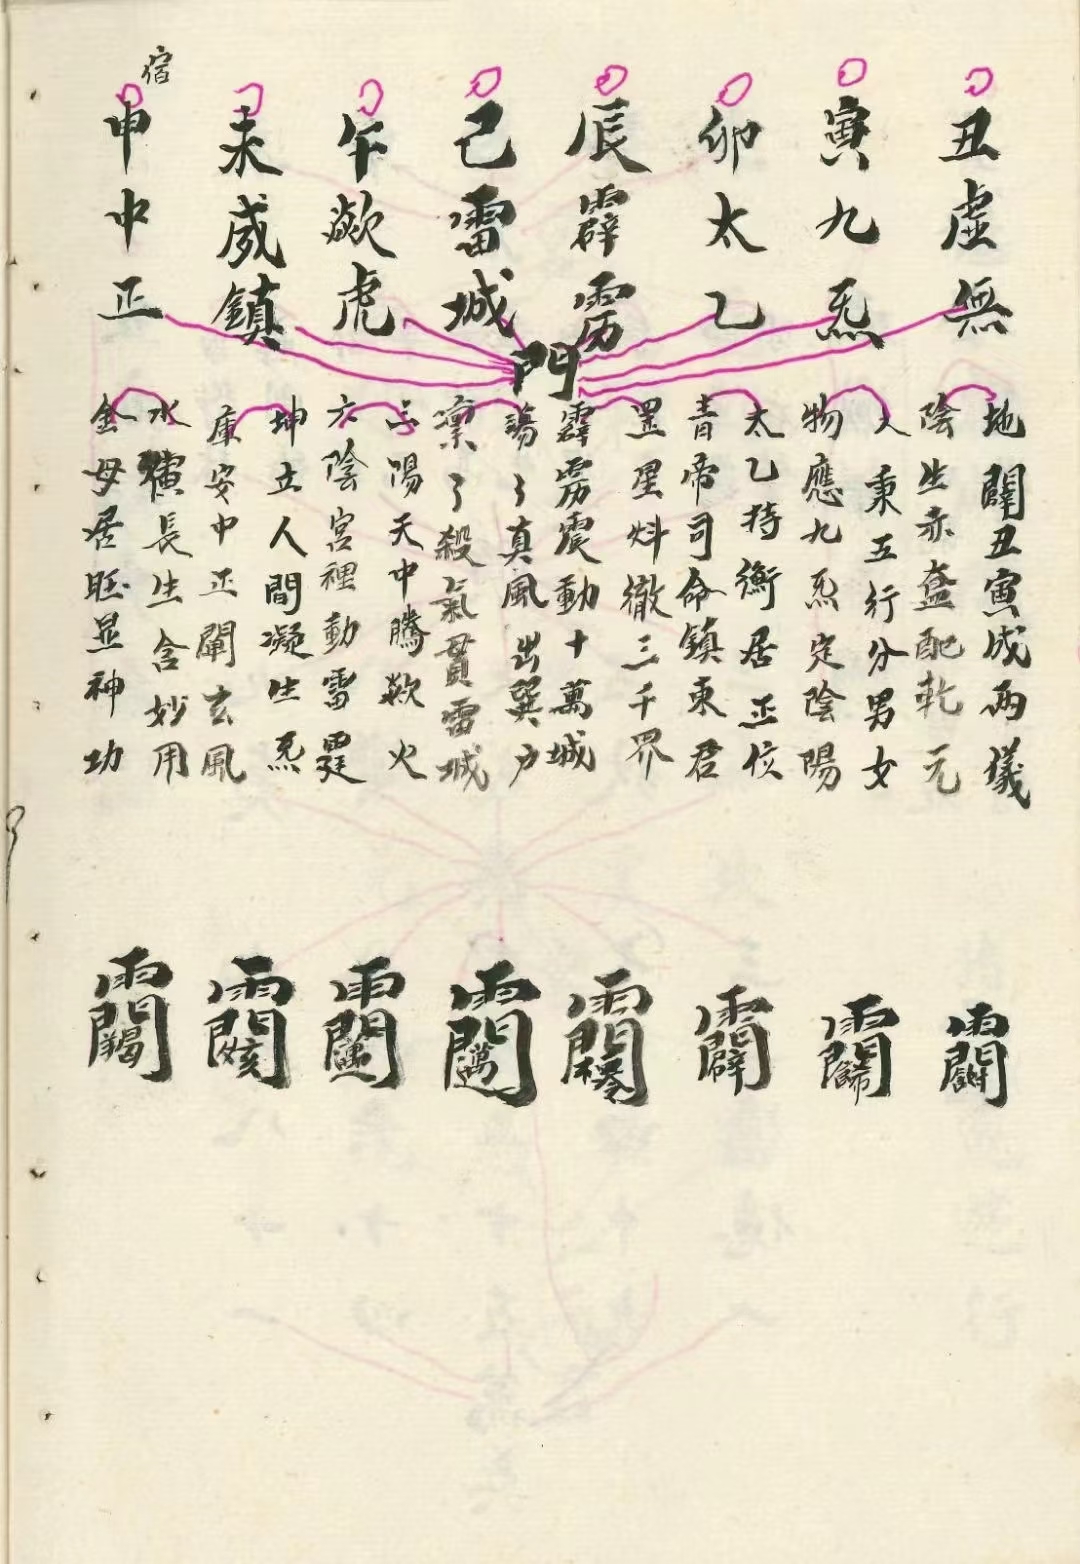 丑虛無
寅九炁
卯太乙
辰霹雳
己雷城
午歘虎
未威鎮
申中正
宿
門
地闢丑寅成兩儀
陰生赤盖配乾元
人秉五行分男女
物應九炁定陰陽
太乙持衡居正位
青帝司命鎮東君
罡星斗徹三千界
霹雳震動十萬城
謁了真風出巽户
凛了殺氣貫雷城
三陽天中騰歘火
六陰宮裡動雷霆
坤立人間凝生炁
庫安中正闡玄風
水長生含妙用
金母居旺显神功